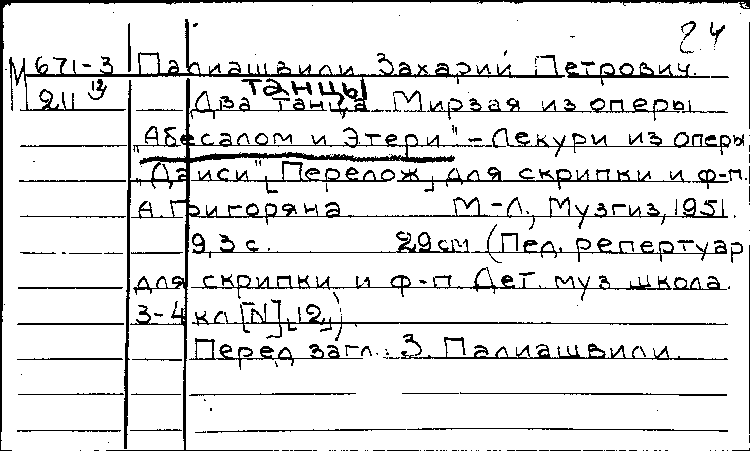 24
М 671-3 Палиашвили, Захарий Петрович.
211 12 танцы
Два танца. Мирзая из оперы
"Абесалом и Этери" - Лекури из оперы
"Даиси" [Перелож] для скрипки и ф-п.
А. Григоряна. М-Л, Музгиз, 1951.
9,3 с. 29 см (Пед. репертуар
для скрипки и ф-п. Дет. муз школа.
3-4 кл [N] [12])
Перед загл.: З. Палиашвили.